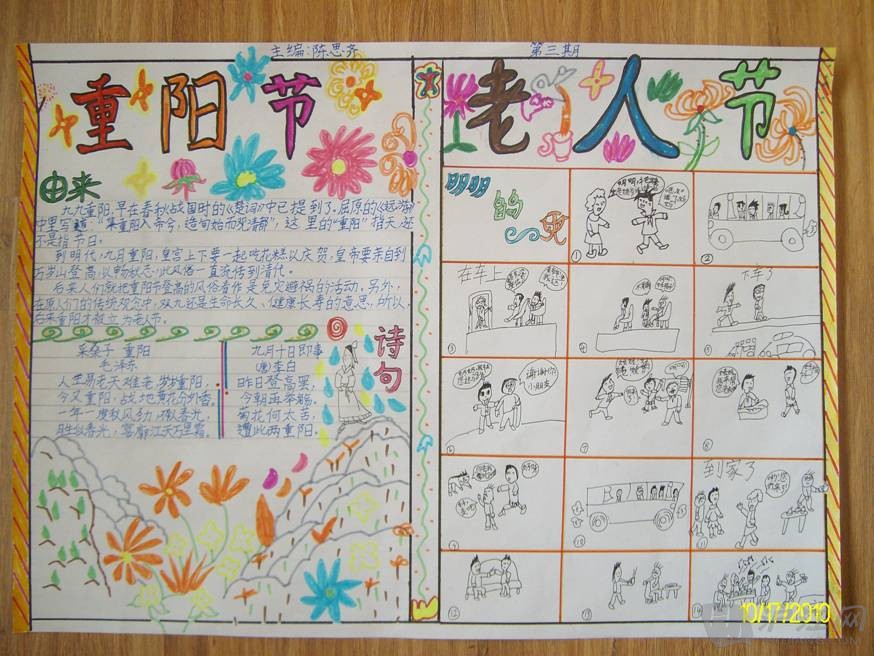 主编:陈思齐
第三期
重阳节
老人节
由来
九九重阳,早在春秋战国时的《楚词》中已提到了.屈原的《远游》
中里写道:"集重阳入帝兮,造旬始而观清都",这里的"重阳"指天,还
不是指节日。
到明代,九月重阳,皇宫上下要一起吃花糕以庆贺,皇帝要亲自到
万岁山登高,以畅秋志,此风俗一直流传到清代。
后来人们就把重阳节登高的风俗看作是免灾避祸的活动。另外,
人们的传统观念中,双九还是生命长久、健康长寿的意思,所以,
后来重阳才被立为老人节。
诗句
采桑子 重阳
毛泽东
人生易老天难老,岁岁重阳,
今又重阳,战地黄花分外香。
一年一度秋风劲,不似春光,
胜似春光,寥廓江天万里霜。
九月十日即事
(唐)李白
昨日登高罢,
今朝再举觞。
菊花何太苦,
遭此两重阳。
明明的一天
①
②
在车上
下车了
谢谢你小朋友
到家了
10/17/2010